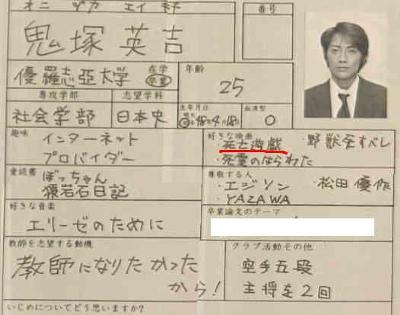 オニ ヅカ エイ キチ
番号
鬼塚英吉
優羅志亜大学
在学
卒業
年齢
25
専攻学部
志望学科
生年月日
血液型
社会学部
日本史
0
趣味
インターネット
プロバイダー
好きな映画
死亡遊戯 ・野獣死すべし
・死霊のはらわた
愛読書
ぼっちゃん
猿岩石日記
尊敬する人
・エジソン ・松田優作
・YAZAWA
好きな音楽
エリーゼのために
卒業論文のテーマ
教師を志望する動機
教師になりたかった
から!
クラブ活動その他
空手五段
主将を2回
いじめについてどう思いますか?